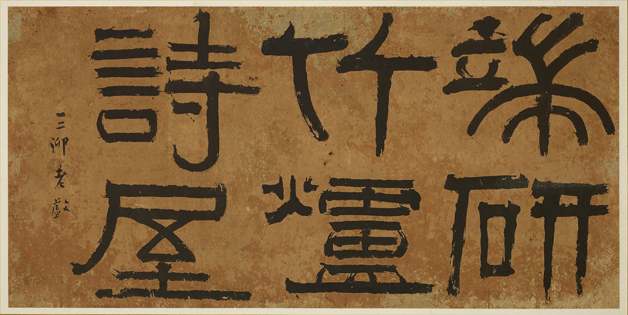 端研
竹爐
詩屋
三卯老